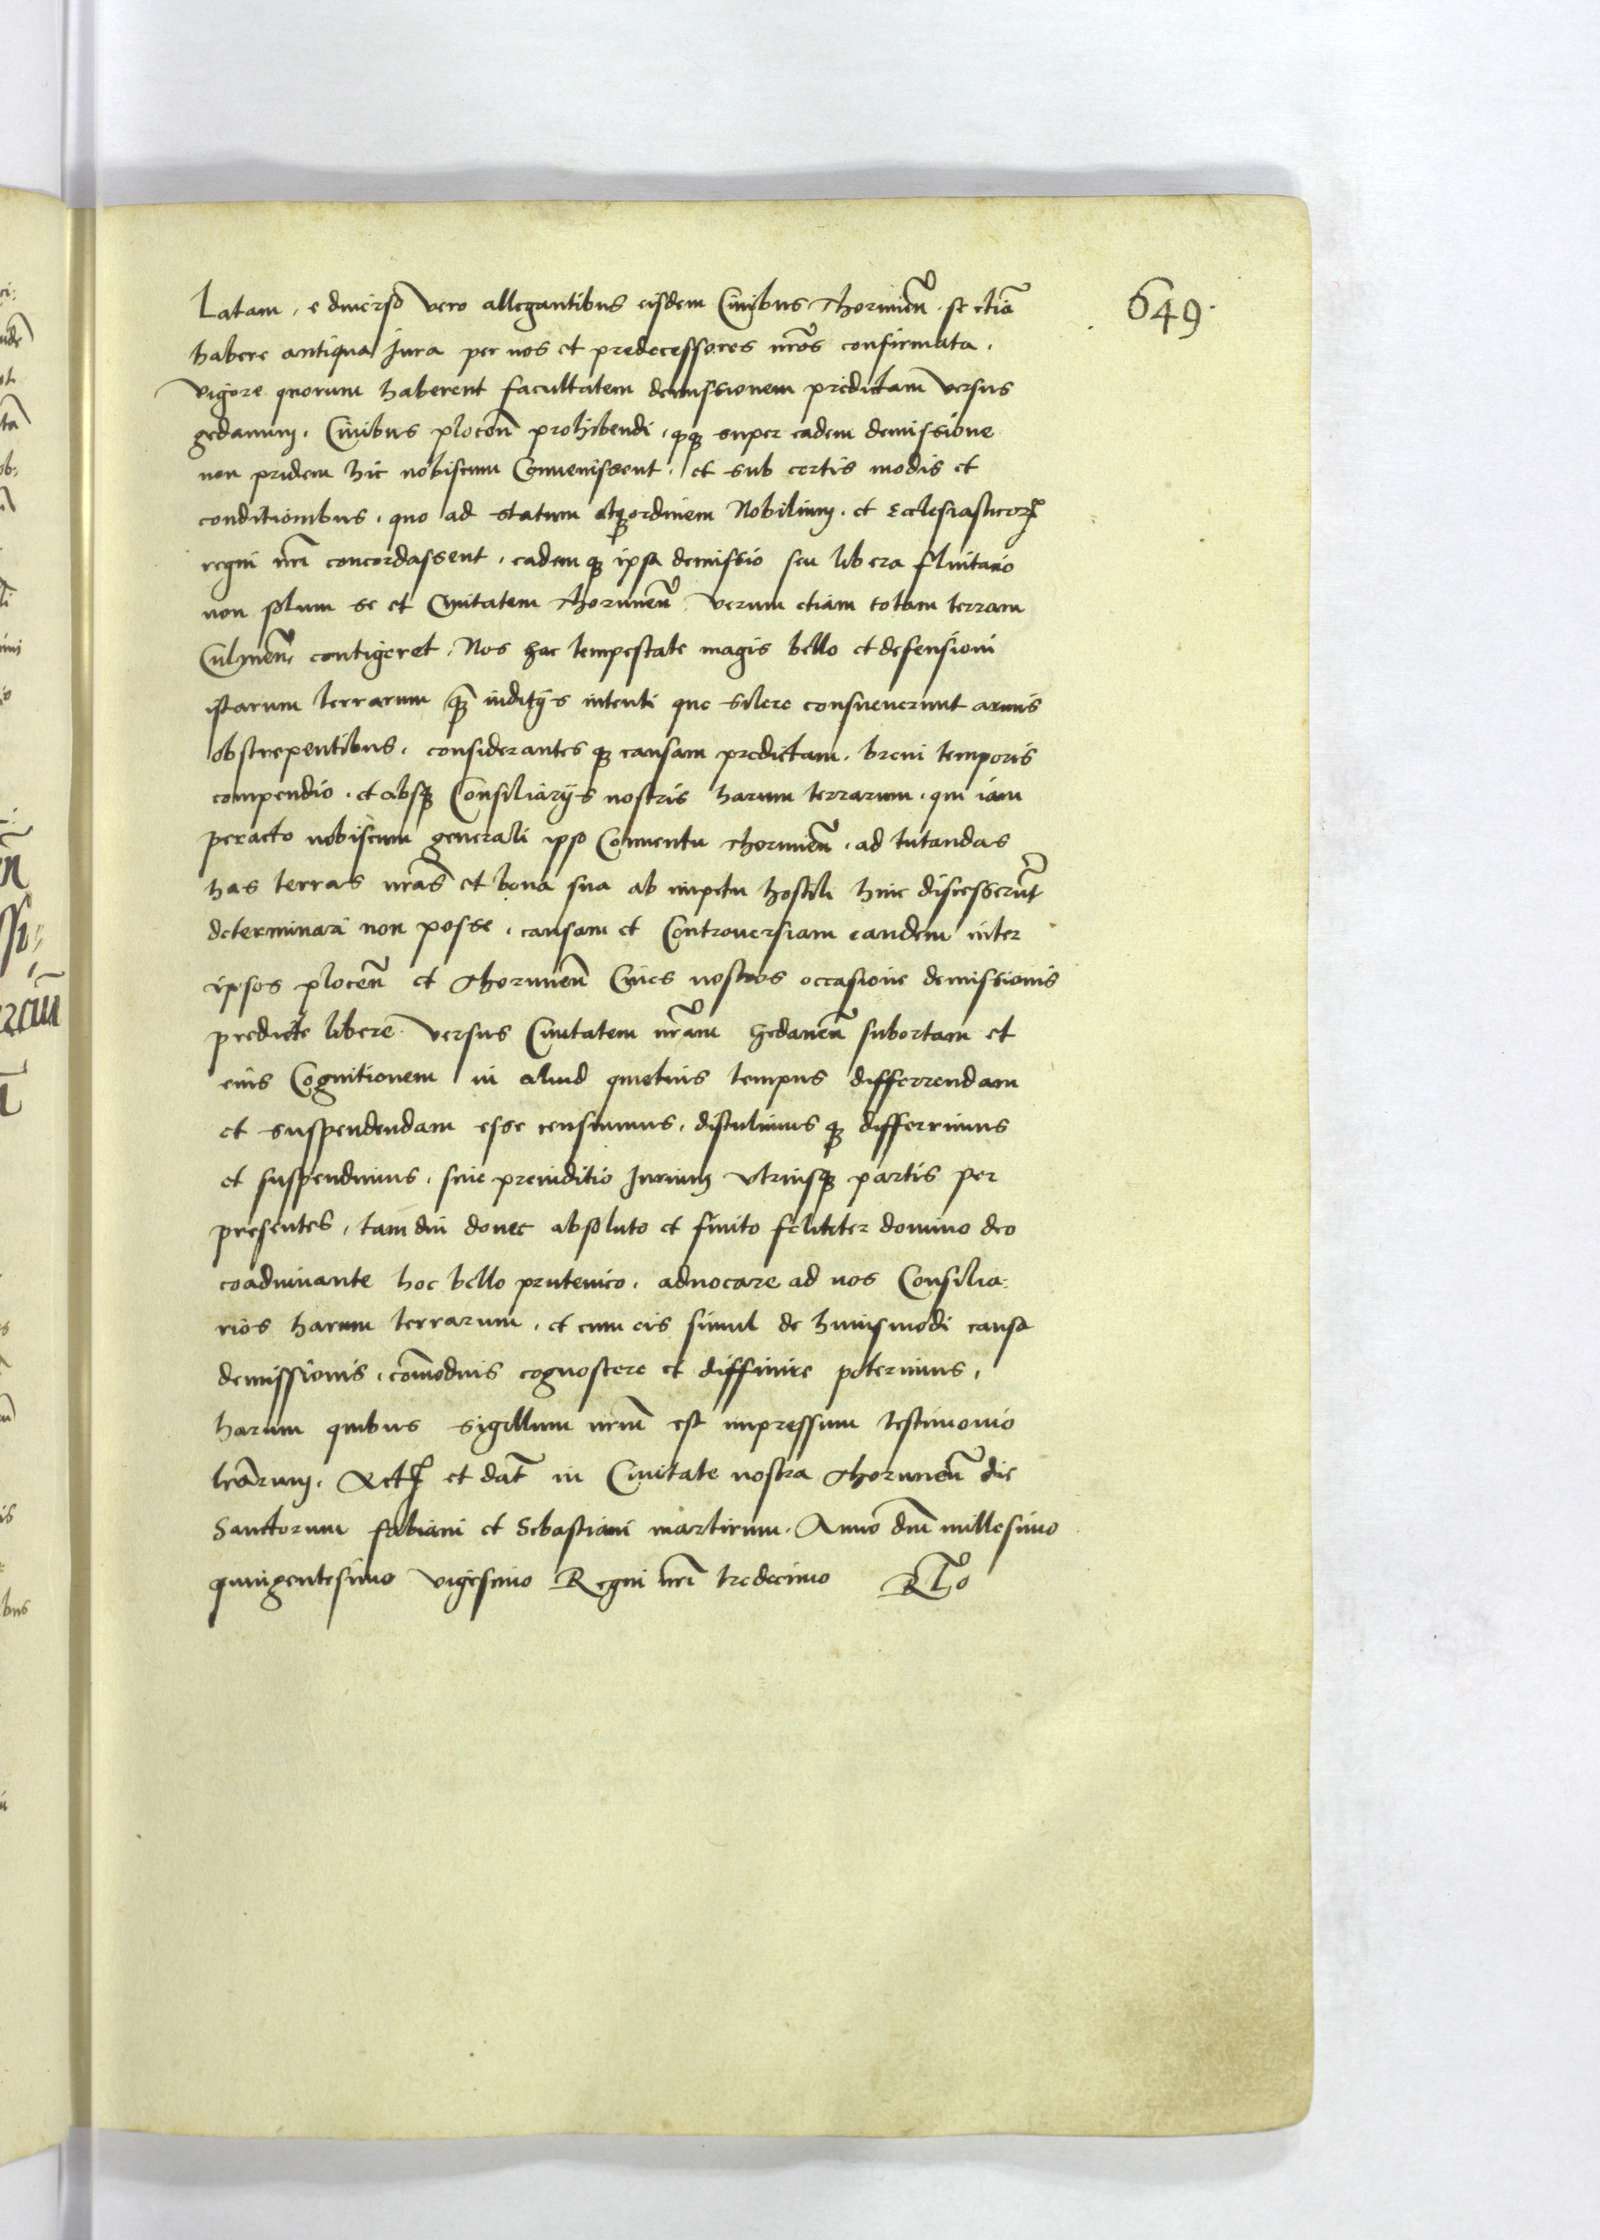 649.
Latam, e diuerso vero allegantibus eisdem Ciuibus thorunen̄. se etiā
habere antiqua Jura per nos et predecessores nr̄os confirmata.
vigore quorum haberent facultatem demissionem predictam versus
gedanum. Ciuibus plocen̄ prohibendi, qꝫ super eadem demissione
non pridem hic nobiscum Conuenissent. et sub certis modis et
conditionibus, quo ad statum atqꝫ ordinem Nobilium. et Ecclesiasticorꝝ
regni nr̄i concordassent, eademqꝫ ipsa demissio seu libera fluitatio
non solum se et Ciuitatem thorunen̄. verum etiam totam terram
Culmen̄. contigeret. Nos hac tempestate magis bello et defensioni
istarum terrarum qꝫ iuditijs intenti que silere consueuerunt armis
obstrepentibus, considerantesqꝫ causam predictam, breui temporis
compendio, et absqꝫ Consiliarijs nostris harum terrarum, qui iam
peracto nobiscum generali ipso Conuentu thorunen̄, ad tutandas
has terras nr̄as et bona sua ab impetu hostili hinc discesserūt
determinari non posse, causam et Controuersiam eandem inter
ipsos plocen̄ et thorunen̄ Ciues nostros occasione demissionis
predicte libere versus Ciuitatem nr̄am Gedanen̄ subortam et
eius Cognitionem in aliud quietius tempus differrendam
et suspendendam esse censuimus, distulimusqꝫ differrimus
et suspendimus, sine preiuditio Jurium vtriusqꝫ partis per
presentes, tam diu donec absoluto et finito feliciter domino deo
coadiuuante hoc bello prutenico, aduocare ad nos Consilia-
rios harum terrarum, et cum eis simul de huiusmodi causa
demissionis, com̄odius cognoscere et diffinire poterimus,
harum quibus sigillum nr̄um est impressum testimonio
lr̄arum. Actꝝ et dat̄ in Ciuitate nostra thorunen̄ die
Sanctorum fabiani et Sebastiani martirum. Anno dn̄i millesimo
quingentesimo vigesimo Regni nr̄i tredecimo